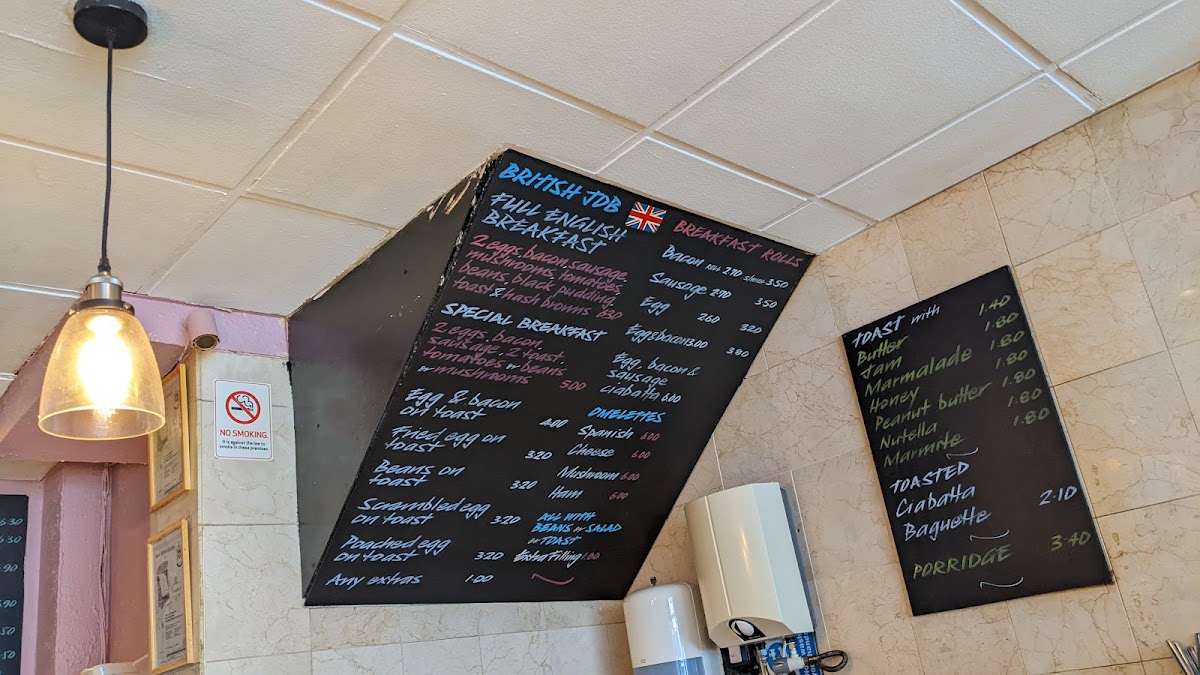 BRITISH JOB
FULL ENGLISH
BREAKFAST
2 eggs, bacon, sausage,
mushrooms, tomatoes,
beans, black pudding,
toast & hash browns 630
SPECIAL BREAKFAST
2 eggs, bacon,
sausage, 2 toast,
tomatoes or beans
or mushrooms 500
Egg & bacon
on toast 400
Fried egg on
toast 3.20
Beans on
toast 3.20
Scrambled egg
on toast 3.20
Poached egg
on toast 3.20
Any extras 1.00
BREAKFAST ROLLS
Bacon 2.70 3.50
Sausage 2.70 3.50
Egg 2.60 3.20
Egg & bacon 3.00 3.80
Egg, bacon &
sausage
ciabatta 6.00
OMELETTES
Spanish 6.00
Cheese 6.00
Mushroom 6.00
Ham 6.00
ALL WITH
BEANS or SALAD
or TOAST
Extra Filling 1.00
TOAST with
Butter 1.40
Jam 1.80
Marmalade 1.80
Honey 1.80
Peanut butter 1.80
Nutella 1.80
Marmite 1.80
TOASTED
Ciabatta
Baguette 2.10
PORRIDGE 3.40
NO SMOKING.
It is against the law to
smoke in these premises
6.30